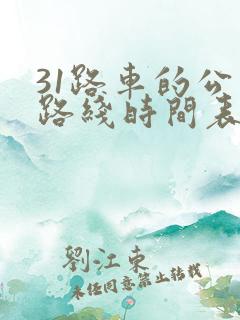 31路車的公
路綫時間表
劉江東
未经同意禁止转载